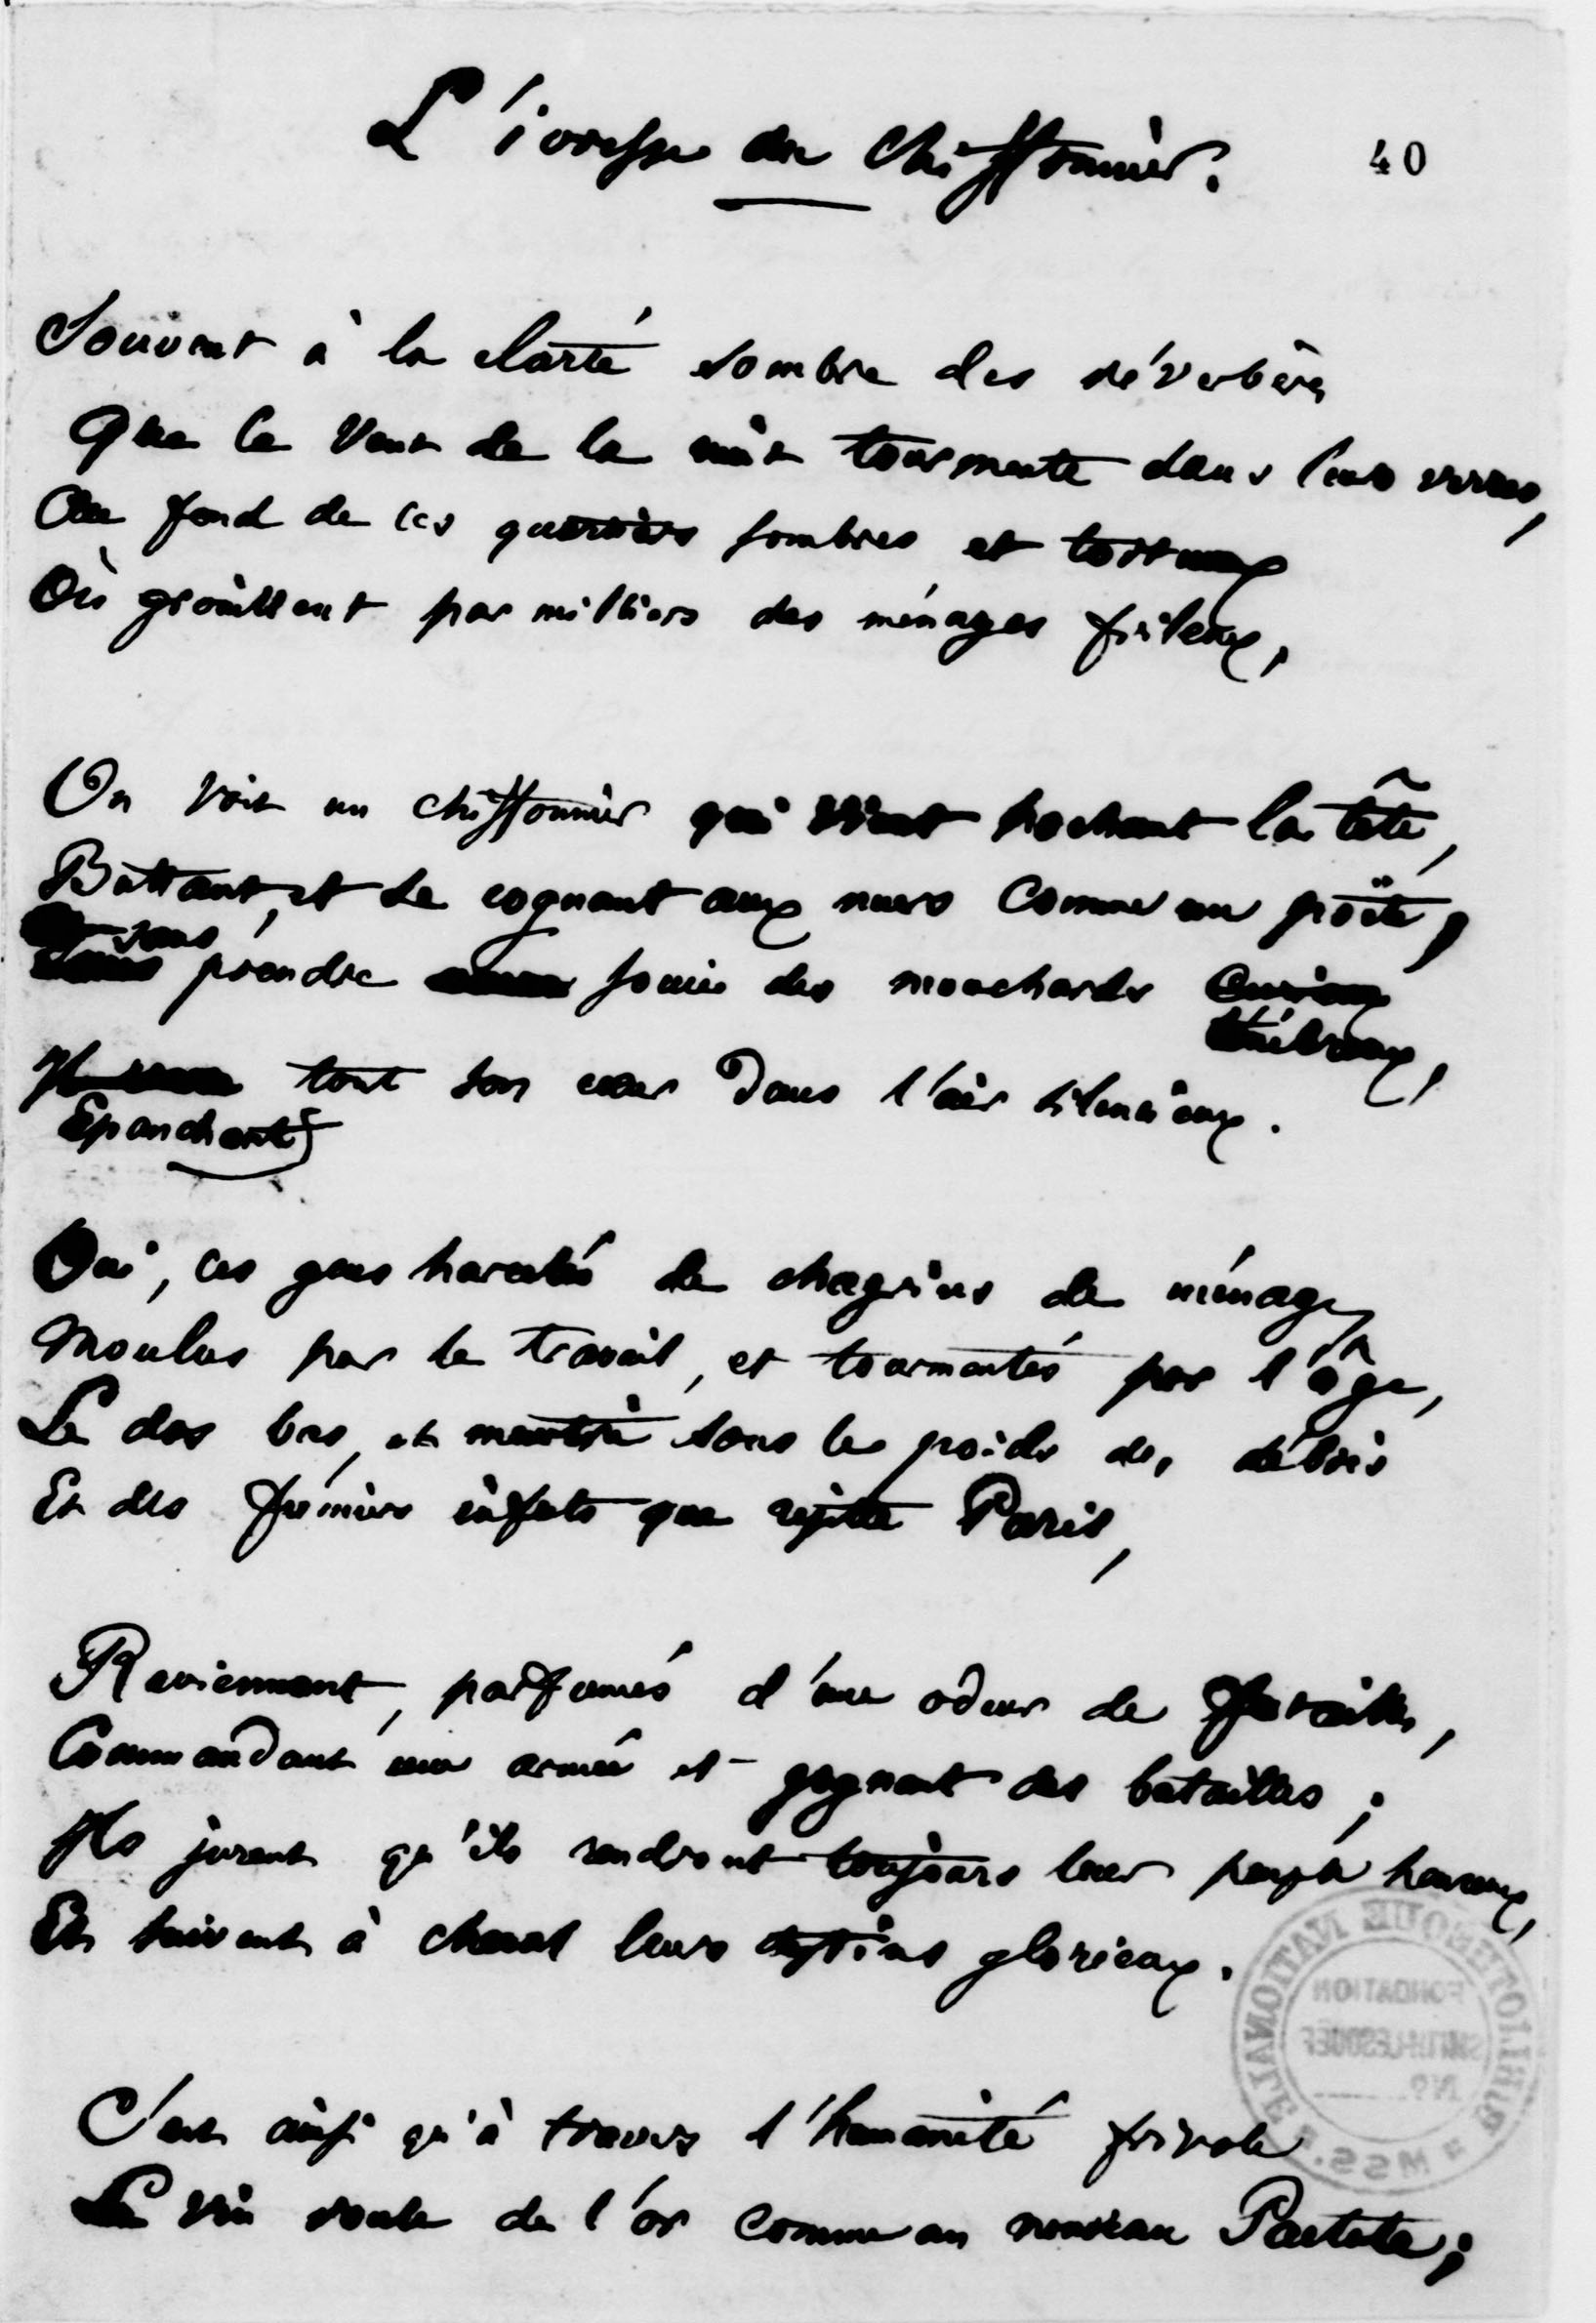 L'ivresse du Chiffonnier.
40
Souvent à la clarté sombre des réverbères
Que le Vent de la nuit tourmente dans leurs verres,
Au fond de ces quartiers sombres et tortueux
Où grouillent par milliers des ménages frileux,
On voit un chiffonnier qui vient hochant la tête,
Buttant, et se cognant aux murs comme un poëte,
sans
prendre souci des mouchards
ténébreux,
tout son cœur dans l'air silencieux.
Epanchant
Oui, ces gens harcelés de chagrins de ménage,
Moulus par le travail, et tourmentés par l'âge,
Le dos bas, et meurtri sous le poids des débris
Et des fumiers infects que rejette Paris,
Reviennent, parfumés d'une odeur de futailles,
Commandant une armée et gagnant des batailles ;
Ils jurent qu'ils rendront toujours leur peuple heureux,
Et suivent à cheval leurs destins glorieux.
C'est ainsi qu'à travers l'humanité frivole
Le vin roule de l'or comme un nouveau Pactole ;
BIBLIOTHEQUE NATIONALE
FONDATION
SMITH-LESOUËF
N°
MSS.